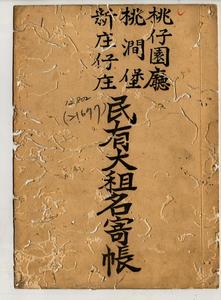 桃仔園廳
桃澗堡
新庄仔庄
民有大租名寄帳
12802
(>1697)